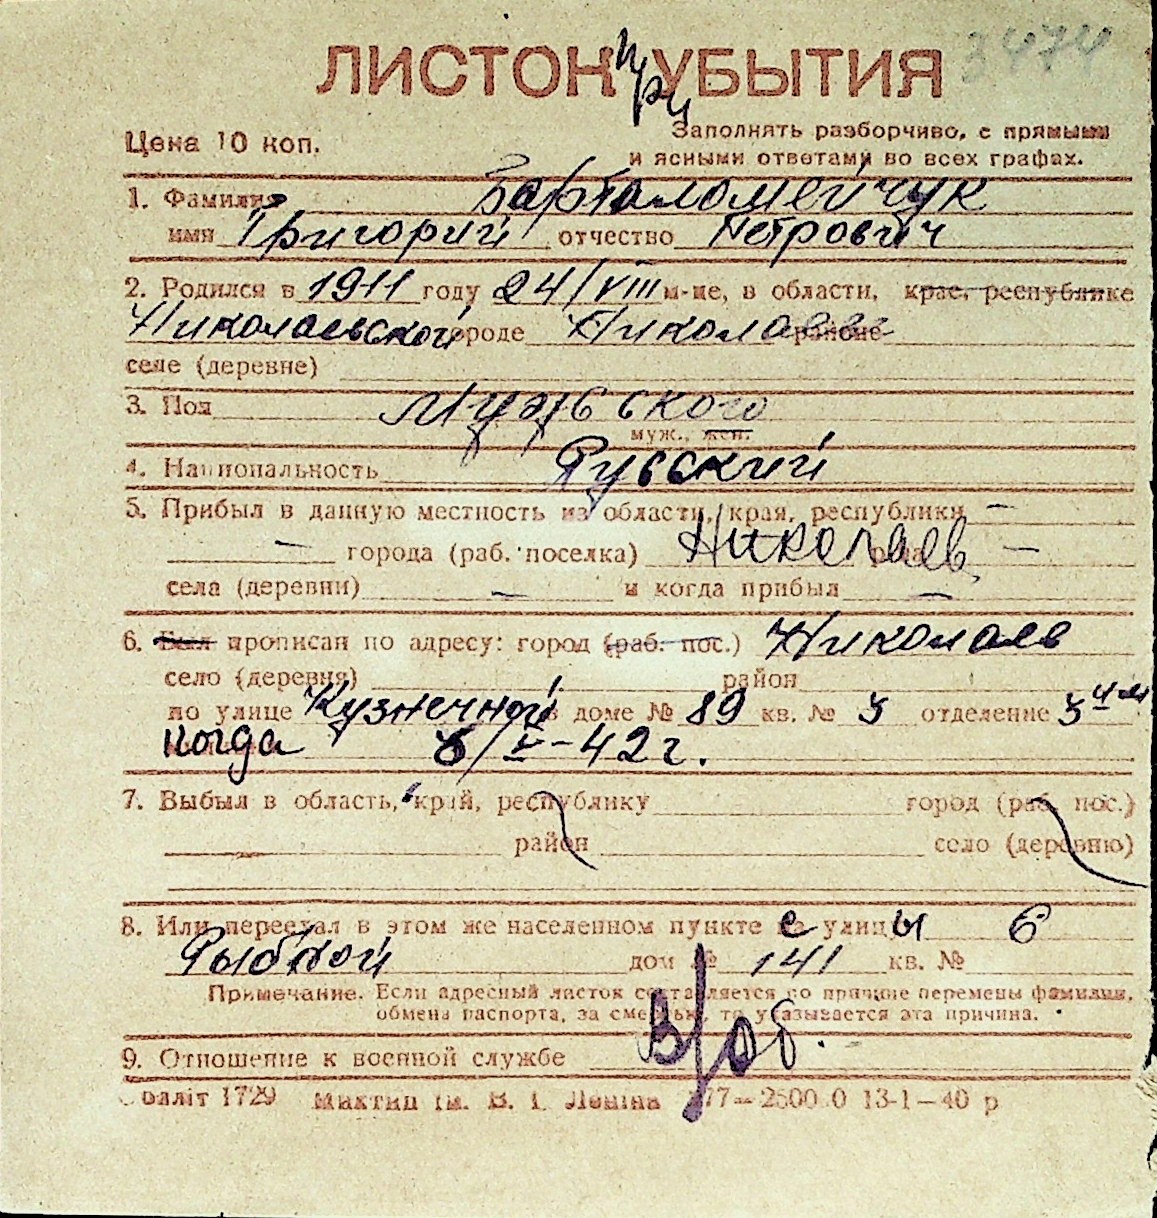 3474
ЛИСТОК при УБЫТИЯ
Цена 10 коп.
Заполнять разборчиво, с прямыми
и ясными ответами во всех графах.
1. Фамилия Варталомейчук
имя Григорий отчество Петрович
2. Родился в 1911 году 24/VIII м-це, в области, крае, республике
Николаевской городе Николаеве районе
селе (деревне)
3. Пол Мужского
муж., жен.
4. Национальность Русский
5. Прибыл в данную местность из области, края, республики —
— города (раб. поселка) Николаев —
села (деревни) — и когда прибыл —
6. Был прописан по адресу: город (раб. пос.) Николаев
село (деревня) район
по улице Кузнечной в доме № 89 кв. № 3 отделение 3
когда 6/V-42 г.
7. Выбыл в область, край, республику город (раб. пос.)
район село (деревню)
8. Или переехал в этом же населенном пункте с улицы 6
Рыбной дом № 141 кв. №
Примечание. Если адресный листок составляется по причине перемены фамилии,
обмена паспорта, за смертью, то указывается эта причина.
9. Отношение к военной службе в/об.
Облліт 1729 ім. В. І. Леніна 13-1—40 р